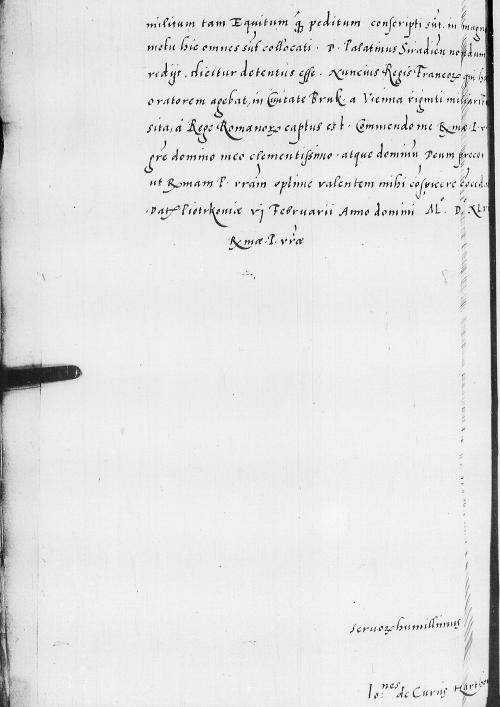 militum tam Equitum q̃ꝫ peditum conscripti sũt, in magno
metu hic omnes sũt collocati. D. Palatinus Siradieñ nondum
redijt, dicitur detentus esse. Nuncius Regis Francoꝝ qui hic
oratorem agebat, in Ciuitate Bruk a Vienna viginti miliarib
sita, a Rege Romanoꝝ captus est. Commendo me Rmę P. v
grẽ domino meo clementissimo. atque dominũ Deum precor
ut Rmam P. vrãm optime valentem mihi cõspicere
Datꝫ Piotrkoviæ vj Februarii Anno domini Mº. Dº. XL
Rmæ. P. vrãe
seruoꝝ humillimus
Io: nes de Curiis